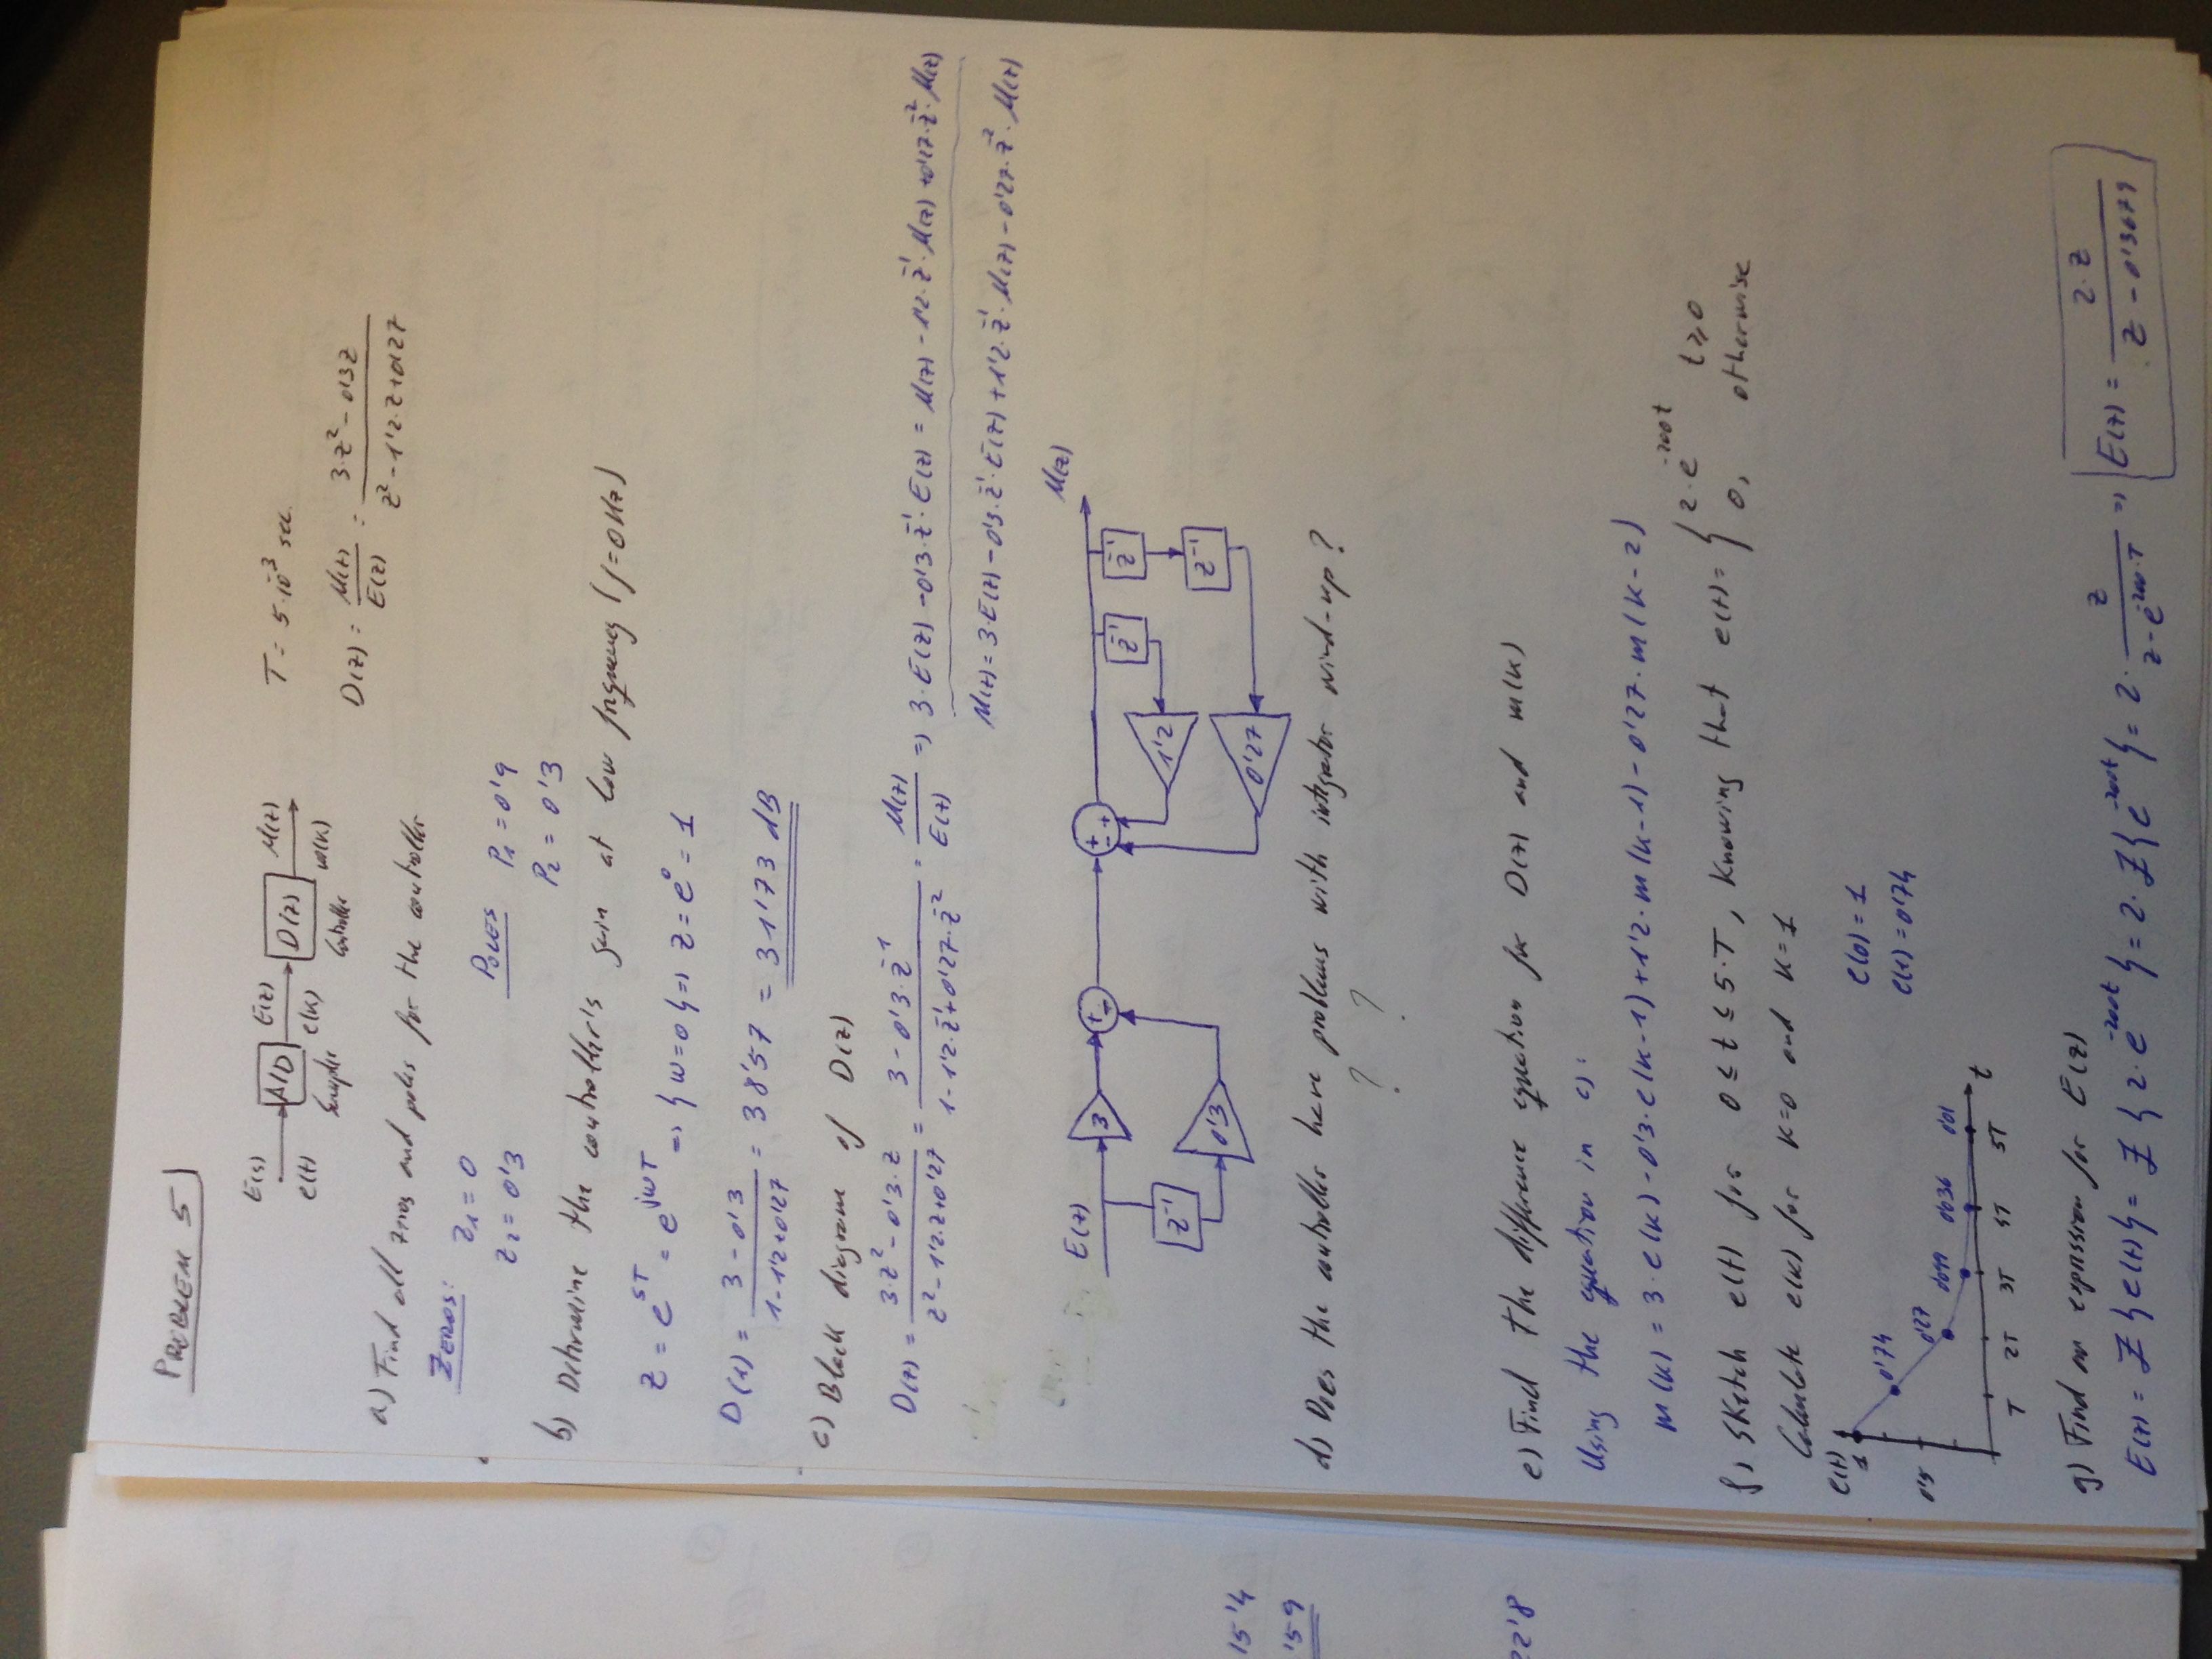 PROBLEM 5
E(s) E(z) M(z)
A/D D(z)
e(t) e(k) m(k)
Sampler Controller
T = 5·10⁻³ sec.
D(z) = M(z)/E(z) = (3·z² - 0'3z)/(z² - 1'2·z + 0'27)
a) Find all zeros and poles for the controller
ZEROS: z₁ = 0
z₂ = 0'3
POLES P₁ = 0'9
P₂ = 0'3
b) Determine the controller's gain at low frequency (f=0Hz)
z = e^{sT} = e^{jωT} => {ω=0} => z = e⁰ = 1
D(1) = (3 - 0'3)/(1 - 1'2 + 0'27) = 38'57 = 31'73 dB
c) Block diagram of D(z)
D(z) = (3·z² - 0'3·z)/(z² - 1'2·z + 0'27) = (3 - 0'3·z⁻¹)/(1 - 1'2·z⁻¹ + 0'27·z⁻²) = M(z)/E(z) => 3·E(z) - 0'3·z⁻¹·E(z) = M(z) - 1'2·z⁻¹·M(z) + 0'27·z⁻²·M(z)
M(z) = 3·E(z) - 0'3·z⁻¹·E(z) + 1'2·z⁻¹·M(z) - 0'27·z⁻²·M(z)
E(z) 3 + - + - + M(z)
z⁻¹ 1'2 z⁻¹ z⁻¹
0'3 z⁻¹
0'27
d) Does the controller have problems with integrator wind-up?
? ?
e) Find the difference equation for D(z) and m(k)
Using the equation in c):
m(k) = 3·e(k) - 0'3·e(k-1) + 1'2·m(k-1) - 0'27·m(k-2)
f) Sketch e(t) for 0 ≤ t ≤ 5·T, Knowing that e(t) = { 2·e^{-200t} t ≥ 0
0, otherwise
Calculate e(k) for k=0 and k=1
e(t)
1
0'74
0'5
0'27 0'099 0'036 0'01
t
T 2T 3T 4T 5T
e(0) = 1
e(1) = 0'74
g) Find an expression for E(z)
E(z) = Z{e(t)} = Z{2·e^{-200t}} = 2·Z{e^{-200t}} = 2·z/(z - e^{-200·T}) => E(z) = 2·z/(z - 0'3679)
15'4
'59
22'8